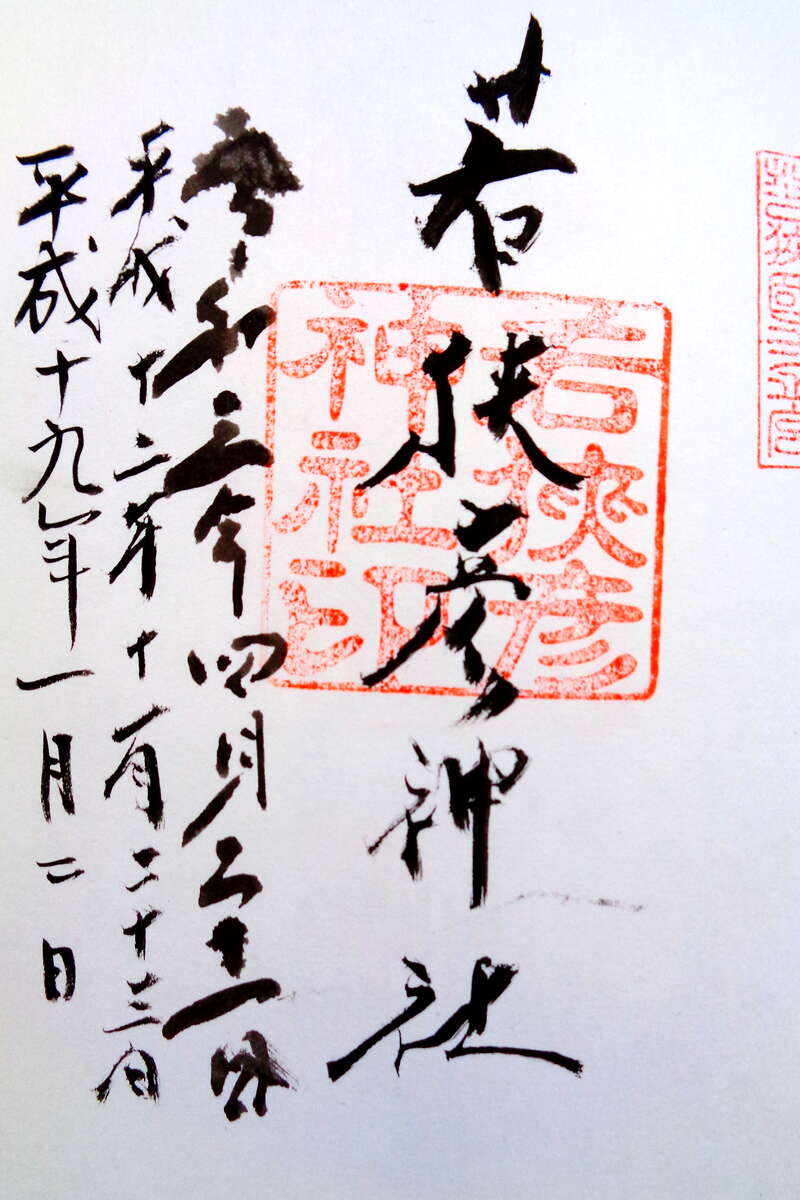 若狭彦神社
若狹彦
神社印
令和三年四月二十一日
平成十二年十一月二十三日
平成十九年一月二日